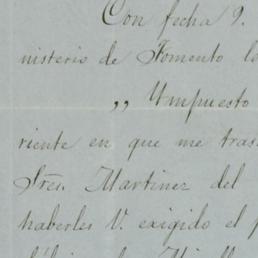 Con fecha 9.
nisterio de Fomento lo
,, Ympuesto
riente en que me tras
Sres. Martinez del
haberles V. exigido el p